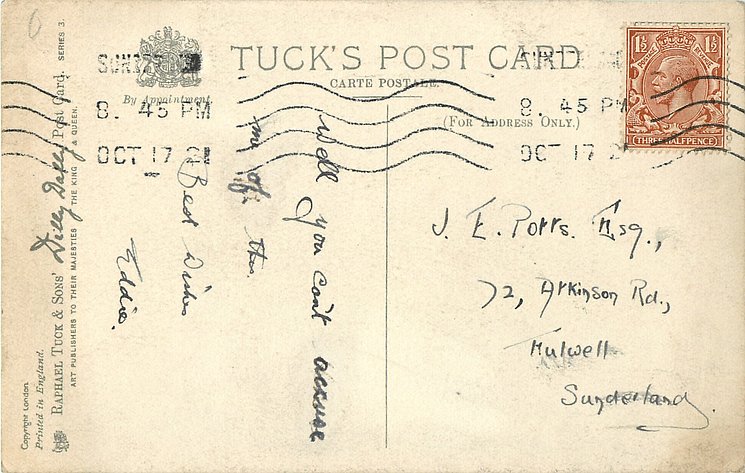 TUCK'S POST CARD
CARTE POSTALE.
By Appointment.
(FOR ADDRESS ONLY.)
SUN
8. 45 PM
OCT 17 21
8. 45 PM
OCT 17 2
1½ 1½
POSTAGE REVENUE
THREE HALFPENCE
Well you can't accuse
me of this
Best Wishes
Eddie.
J. E. Potts. Esq.,
72, Atkinson Rd.,
Fulwell
Sunderland.
RAPHAEL TUCK & SONS' Dilly Dally Post Card. SERIES 3.
ART PUBLISHERS TO THEIR MAJESTIES THE KING & QUEEN.
Copyright London.
Printed in England.